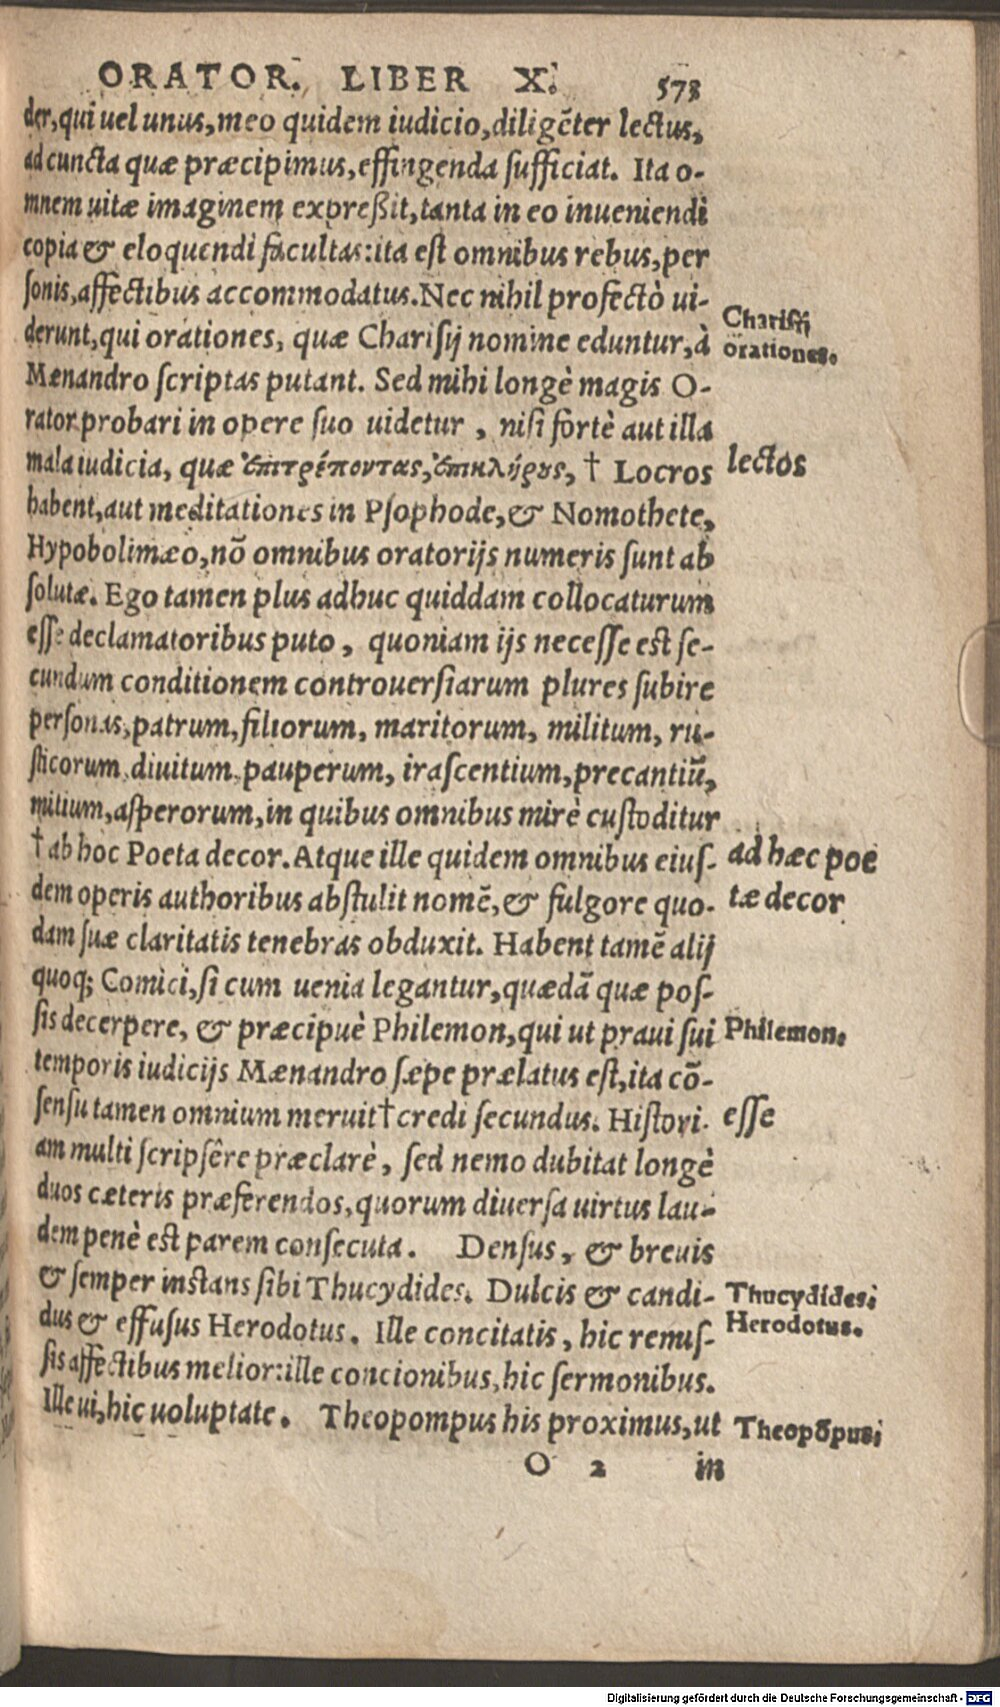 ORATOR. LIBER X. 578
der, qui uel unus, meo quidem iudicio, diligẽter lectus,
ad cuncta quæ præcipimus, effingenda sufficiat. Ita o-
mnem uitæ imaginem expreßit, tanta in eo inueniendi
copia & eloquendi facultas: ita est omnibus rebus, per
sonis, affectibus accommodatus. Nec nihil profectò ui-
derunt, qui orationes, quæ Charisij nomine eduntur, à
Charisij
orationes.
Mænandro scriptas putant. Sed mihi longè magis O-
rator probari in opere suo uidetur, nisi fortè aut illa
mala iudicia, quæ ἐπιτρέποντας, ἐπικλήρους, † Locros
lectos
habent, aut meditationes in Psophode, & Nomothete,
Hypobolimæo, nõ omnibus oratorijs numeris sunt ab
solutæ. Ego tamen plus adhuc quiddam collocaturum
esse declamatoribus puto, quoniam ijs necesse est se-
cundum conditionem controuersiarum plures subire
personas, patrum, filiorum, maritorum, militum, ru-
sticorum, diuitum, pauperum, irascentium, precantiũ,
mitium, asperorum, in quibus omnibus mirè custoditur
† ab hoc Poeta decor. Atque ille quidem omnibus eius-
ad hæc poe
dem operis authoribus abstulit nomẽ, & fulgore quo-
tæ decor
dam suæ claritatis tenebras obduxit. Habent tamẽ alij
quoq; Comici, si cum uenia legantur, quædã quæ pos-
sis decerpere, & præcipuè Philemon, qui ut praui sui
Philemon.
temporis iudicijs Mænandro sæpe prælatus est, ita cõ-
sensu tamen omnium meruit † credi secundus. Histori-
esse
am multi scripsêre præclarè, sed nemo dubitat longè
duos cæteris præferendos, quorum diuersa uirtus lau-
dem penè est parem consecuta. Densus, & breuis
& semper instans sibi Thucydides. Dulcis & candi-
Thucydides;
dus & effusus Herodotus. Ille concitatis, hic remis-
Herodotus.
sis affectibus melior: ille concionibus, hic sermonibus.
Ille ui, hic uoluptate. Theopompus his proximus, ut
Theopõpus;
O 2 in
Digitalisierung gefördert durch die Deutsche Forschungsgemeinschaft - DFG